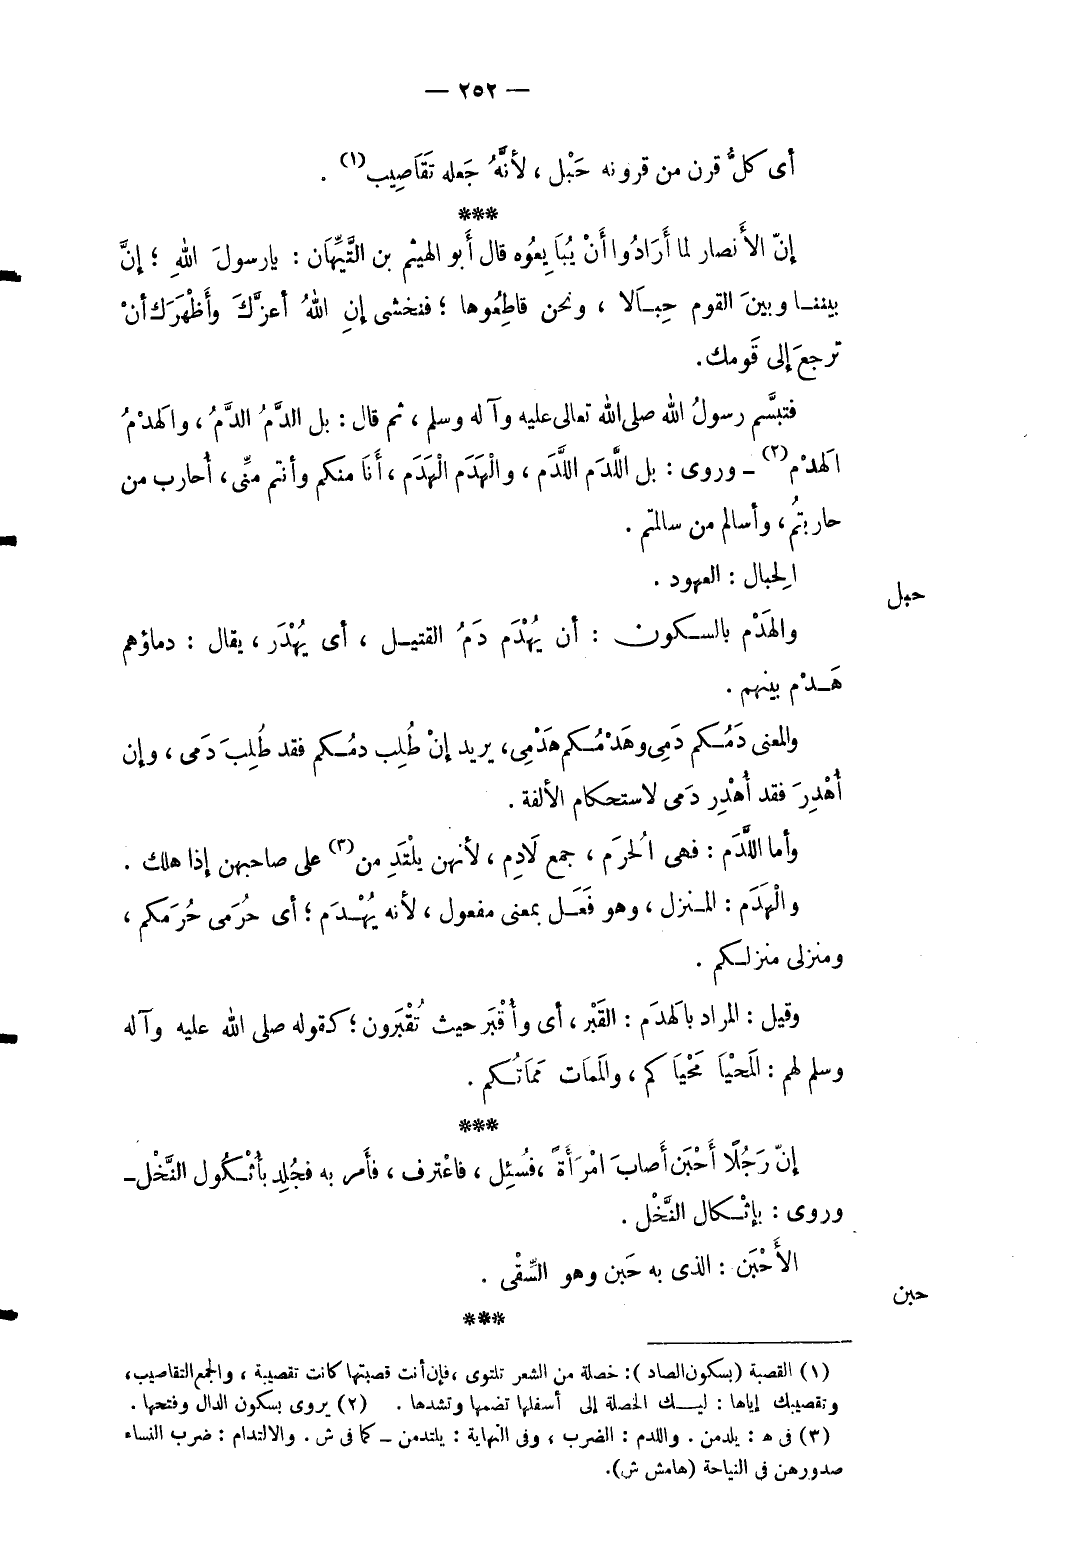 — ٢٥٢ —
أى كلُّ قرن من قرونه حَبْل ، لأنَّهُ جَعله تَقَاصِيب(١) .
***
إنّ الأَنصار لما أَرَادُوا أَنْ يُبَايعُوه قال أَبو الهيثم بن التَّيِّهَان : يارسولَ اللهِ ؛ إنَّ
بيننــا وبينَ القوم حِبــَالا ، ونحن قاطِعُوها ؛ فنخشى إنِ اللهُ أعزَّكَ وأَظْهَرَك أنْ
ترجعَ إلى قَومك .
فتبسَّم رسولُ الله صلى الله تعالى عليه وآله وسلم ، ثم قال : بل الدَّمُ الدَّمُ ، والهدْمُ
الهدْم(٢) ــ وروى : بل اللَّدَم اللَّدَم ، والْهَدَم الْهَدَم ، أَنَا منكم وأنتم منِّى ، أُحارب من
حاربتُم ، وأسالم من سالمتم .
حبل
الحِبال : العهود .
والهَدْم بالســكون : أن يُهْدَم دَمُ القتيــل ، أى يُهْدَر ، يقال : دماؤهم
هَــدْم بينهم .
والمعنى دَمُــكم دَمِى وهَدْمُــكم هَدْمِى ، يريد إنْ طُلِب دمُــكم فقد طُلِبَ دَمى ، وإن
أُهْدِرَ فقد أُهْدِر دَمى لاستحكام الألفة .
وأما اللَّدَم : فهى الُحرَم ، جمع لَادِم ، لأنهن يلْتَدِ من(٣) على صاحبهن إذا هلك .
والْهَدَم : المــنزل ، وهو فَعَــل بمعنى مفعول ، لأنه يُهْــدَم ؛ أى حُرَمى حُرَمكم ،
ومنزلى منزلــكم .
وقيل : المراد بالهدَم : القَبْر ، أى وأُقْبَر حيث تُقْبَرون ؛ كقوله صلى الله عليه وآله
وسلم لهم : المَحْيَا مَحْيَاكم ، والمَمَات مَمَاتُــكم .
***
إنّ رَجُلًا أَحْبَن أصابَ امْرَأَةً ، فسُئِل ، فاعْترف ، فأَمر به فجُلِد بأُثْــكُول النَّخْل ــ
وروى : بإثْــكال النَّخْل .
حبن
الأَحْبَن : الذى به حَبن وهو السِّقْى .
***
(١) القصبة (بسكون الصاد): خصلة من الشعر تلتوى ، فإن أنت قصبتها كانت تقصيبة ، والجمع التقاصيب ،
وتقصيبك إياها : ليــك الخصلة إلى أسفلها تضمها وتشدها . (٢) يروى بسكون الدال وفتحها .
(٣) فى هـ : يلدمن . واللدم : الضرب ، وفى النهاية : يلتدمن ــ كما فى ش . والالتدام : ضرب النساء
صدورهن فى النياحة (هامش ش).